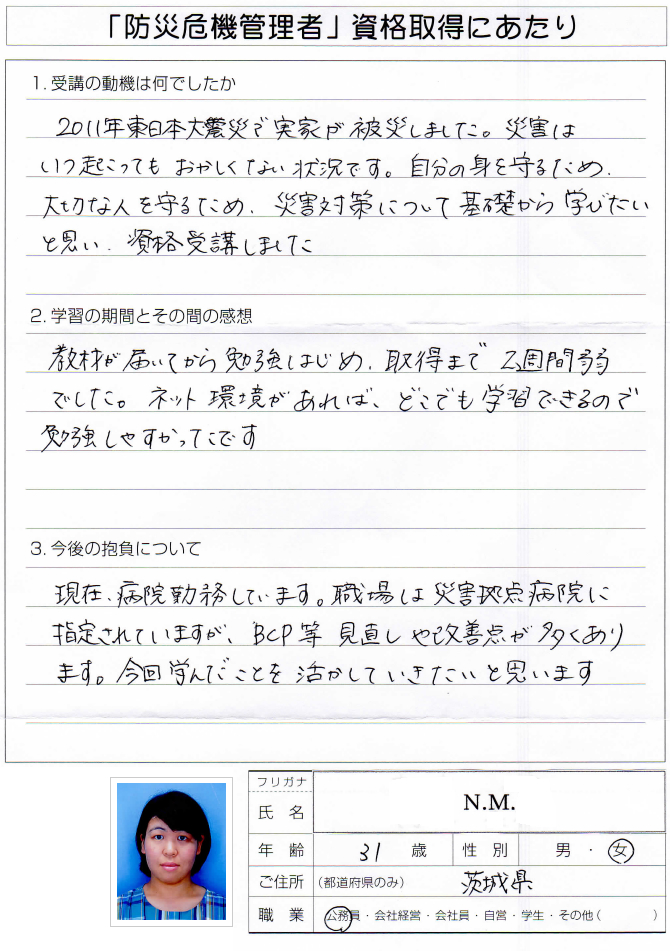 「防災危機管理者」資格取得にあたり
1. 受講の動機は何でしたか
2011年東日本大震災で実家が被災しました。災害は
いつ起こってもおかしくない状況です。自分の身を守るため、
大切な人を守るため、災害対策について基礎から学びたい
と思い、資格受講しました
2. 学習の期間とその間の感想
教材が届いてから勉強はじめ、取得まで2週間弱
でした。ネット環境があれば、どこでも学習できるので
勉強しやすかったです
3. 今後の抱負について
現在、病院勤務しています。職場は災害拠点病院に
指定されていますが、BCP等見直しや改善点が多くあり
ます。今回学んだことを活かしていきたいと思います
フリガナ
氏 名 N.M.
年 齢 31 歳 性 別 男 ・ 女
ご住所 (都道府県のみ) 茨城県
職 業 公務員・会社経営・会社員・自営・学生・その他( )